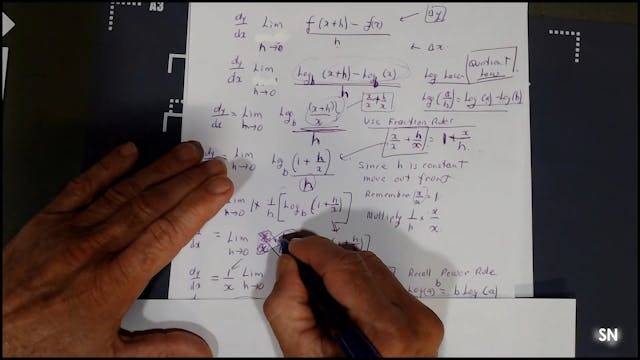 A3
dy/dx Lim h→0 f(x+h) - f(x) / h ← dy
← Δx.
dy/dx Lim h→0 Log_b (x+h) - Log_b (x) / h Log Laws Quotient Laws
dy/dx = Lim h→0 Log_b (x+h) / h x/x + h/x Log = Log(a) - Log(b)
Use Fraction Rules
dy/dx = Lim h→0 Log_b (1 + h/x) / h x/x + h/x = 1 + x/h.
Since h is constant
move out front
Lim h→0 1 x 1/h [Log_b (1 + h/x)] Remember x/x = 1.
Multiply 1/h x x/x.
dy/dx = Lim h→0 x/x
dy/dx = 1/x Lim h→0 Recall Power Rule
Log(a)^b = b Log(a)
SN